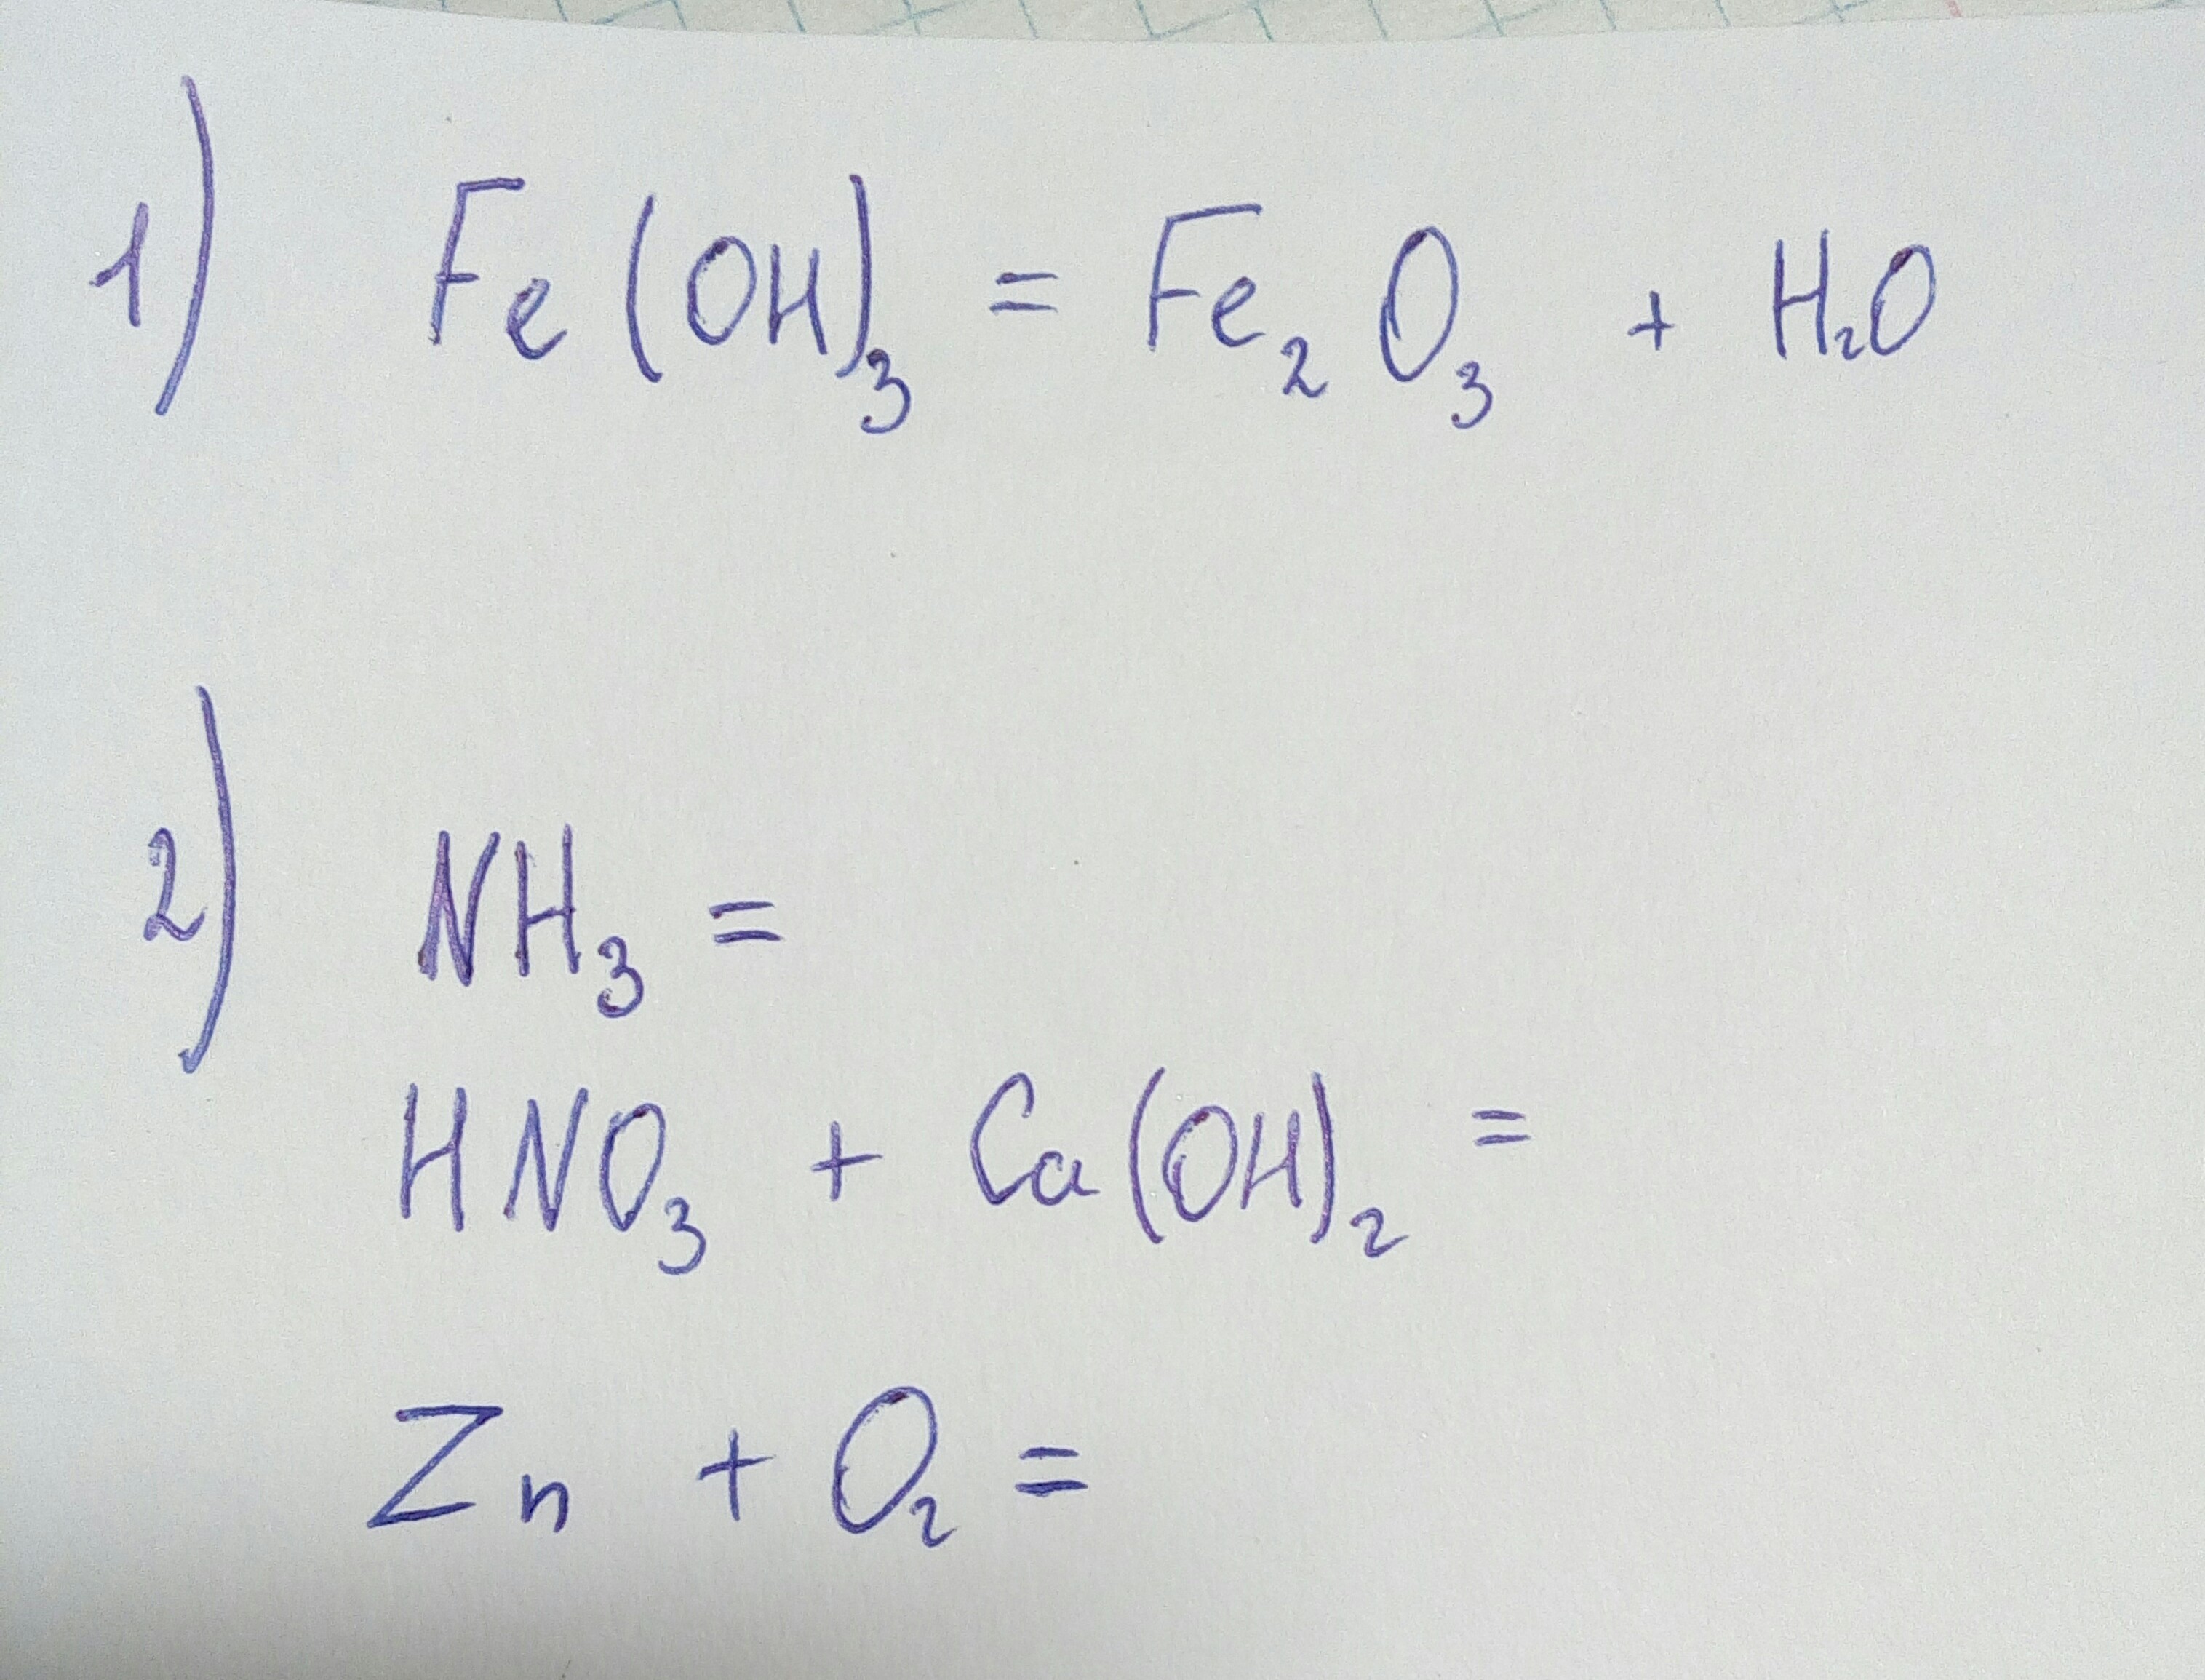 1) Fe(OH)₃ = Fe₂O₃ + H₂O
2) NH₃ =
HNO₃ + Ca(OH)₂ =
Zn + O₂ =